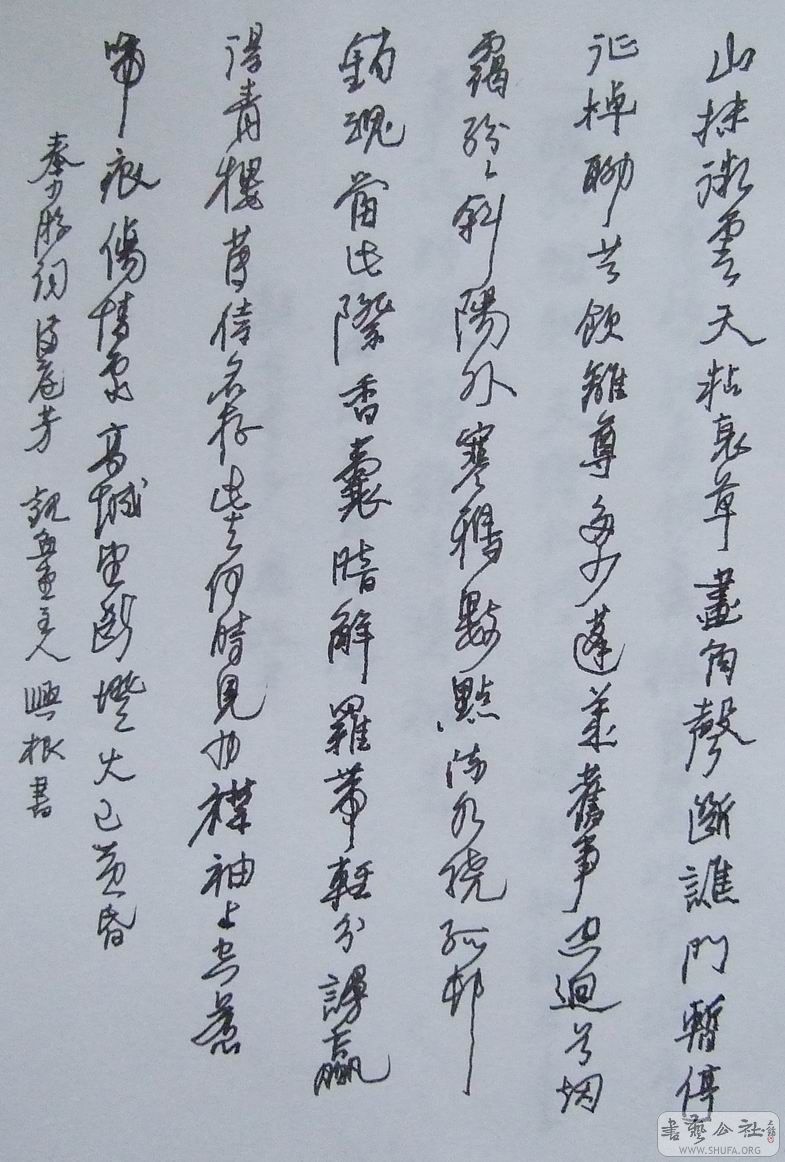 山抹微雲天粘衰草畫角聲斷譙門暫停
征棹聊共飲離尊多少蓬萊舊事空迴首烟
靄紛々斜陽外寒鴉數點流水繞孤邨
銷魂當此際香囊暗解羅帶輕分謾贏
得青樓薄倖名存此去何時見也襟袖上空惹
啼痕傷情處高城望断燈火已黄昏
秦少游詞滿庭芳 主人 興根書
書藝公社
WWW.SHUFA.ORG